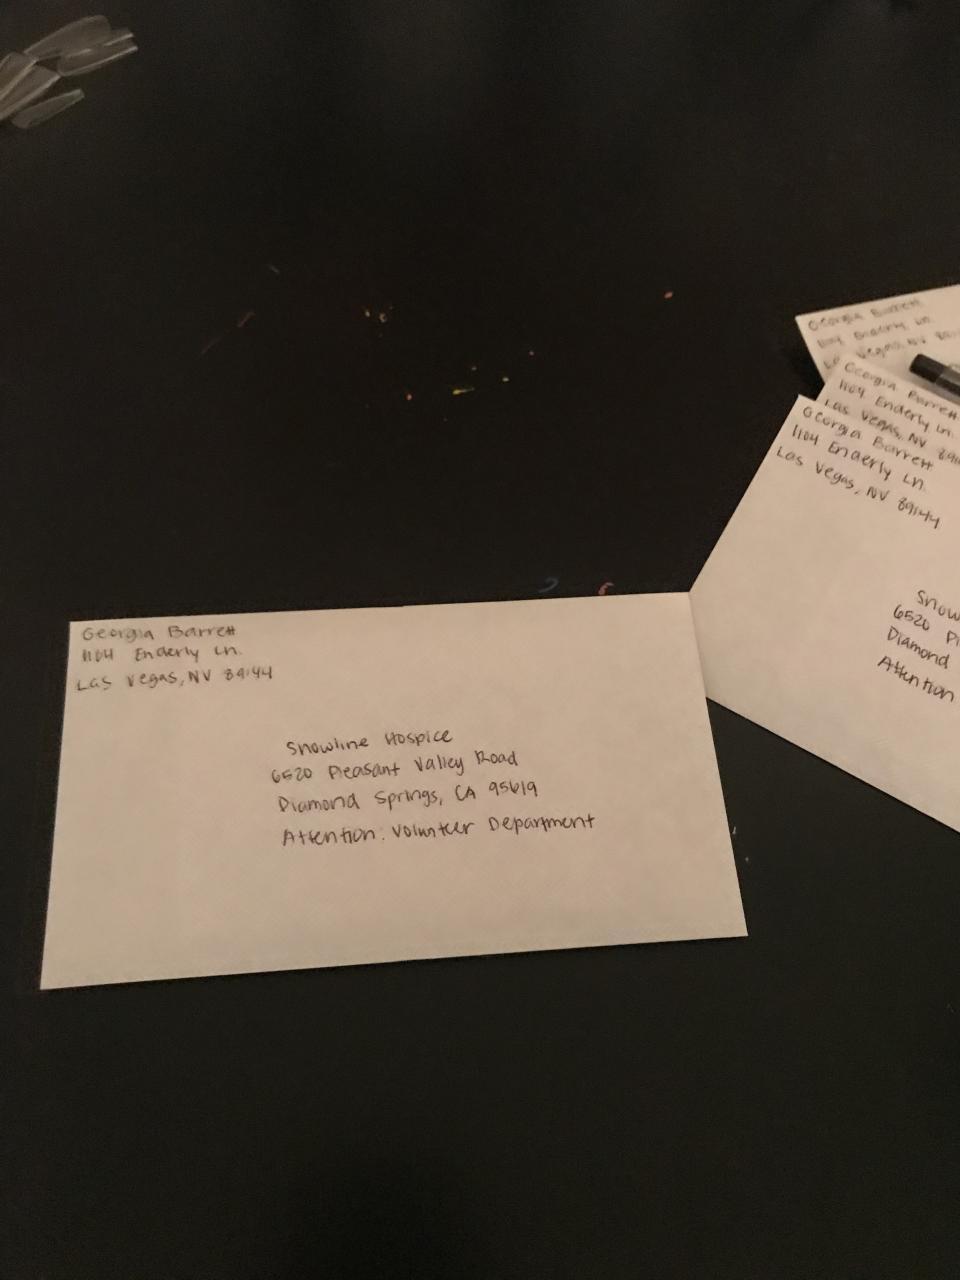 Georgia Barrett
1104 Enderly Ln.
Las Vegas, NV 89144
Snowline Hospice
6520 Pleasant Valley Road
Diamond Springs, CA 95619
Attention: Volunteer Department
Georgia Barrett
1104 Enderly Ln.
Las Vegas, NV
Georgia Barrett
1104 Enderly Ln.
Las Vegas, NV
Georgia Barrett
1104 Enderly Ln.
Las Vegas, NV 89144
Snow
6520 Pl
Diamond
Attention